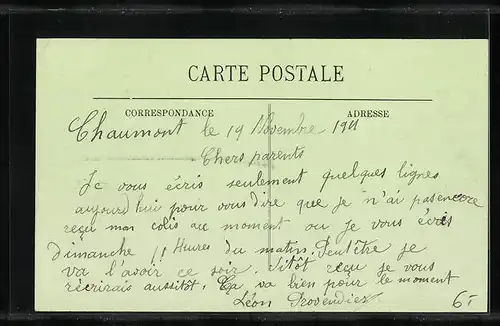 CARTE POSTALE
CORRESPONDANCE
ADRESSE
Chaumont le 19 Novembre 1911
Chers parents
Je vous écris seulement quelques lignes
aujourd'hui pour vous dire que je n'ai pas encore
reçu mon colis au moment ou je vous écris
Dimanche 11 Heures du matin. Peut être je
va l'avoir ce soir. Sitôt reçu je vous
récrirais aussitôt. Ça va bien pour le moment
Léon
6-